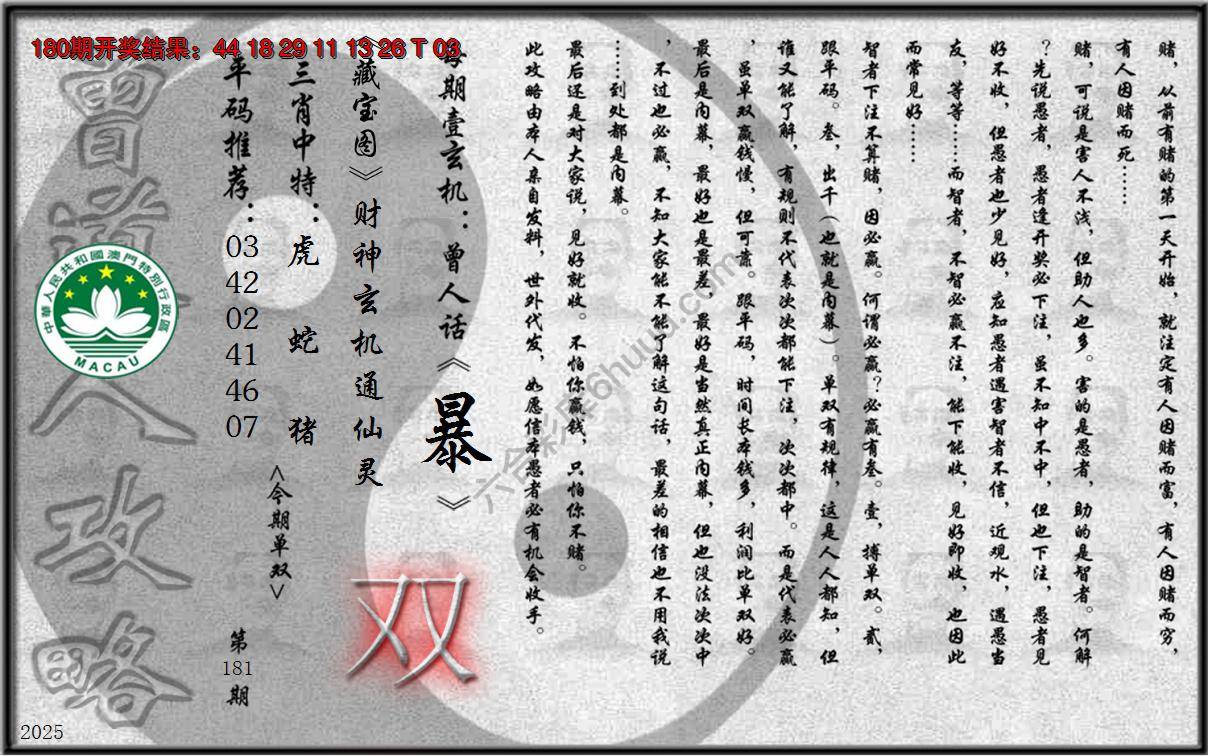 180期开奖结果：44 18 29 11 13 26 T 03
赌，从前有赌的第一天开始，就注定有人因赌而富，有人因赌而穷，
有人因赌而死……
赌，可说是害人不浅，但助人也多。害的是愚者，助的是智者。何解
？先说愚者，愚者逢开奖必下注，虽不知中不中，但也下注，愚者见
好不收，但愚者也少见好，应知愚者遇害智者不信，近观水，遇愚当
友，等等……而智者，不智必赢不注，能下能收，见好即收，也因此
而常见好……
智者下注不算赌，因必赢。何谓必赢？必赢有叁。壹，搏单双。贰，
跟平码。叁，出千（也就是内幕）。单双有规律，这是人人都知，但
谁又能了解，有规则不代表次次都能下注，次次都中。而是代表必赢
，虽单双赢钱慢，但可靠。跟平码，时间长本钱多，利润比单双好。
最后是内幕，最好也是最差，最好是当然真正内幕，但也没法次次中
，不过也必赢，不知大家能不能了解这句话，最差的相信也不用我说
……到处都是内幕。
最后还是对大家说，见好就收。不怕你赢钱，只怕你不赌。
此攻略由本人亲自发料，世外代发，如愿信本愚者必有机会收手。
每期壹玄机：曾人话《暴》
《藏宝图》财神玄机通仙灵
双
三肖中特：虎 蛇 猪
<今期单双>
平码推荐：03 42 02 41 46 07
第181期
曾道人攻略
中華人民共和國澳門特別行政區
MACAU
六合彩库6huuu.com
2025